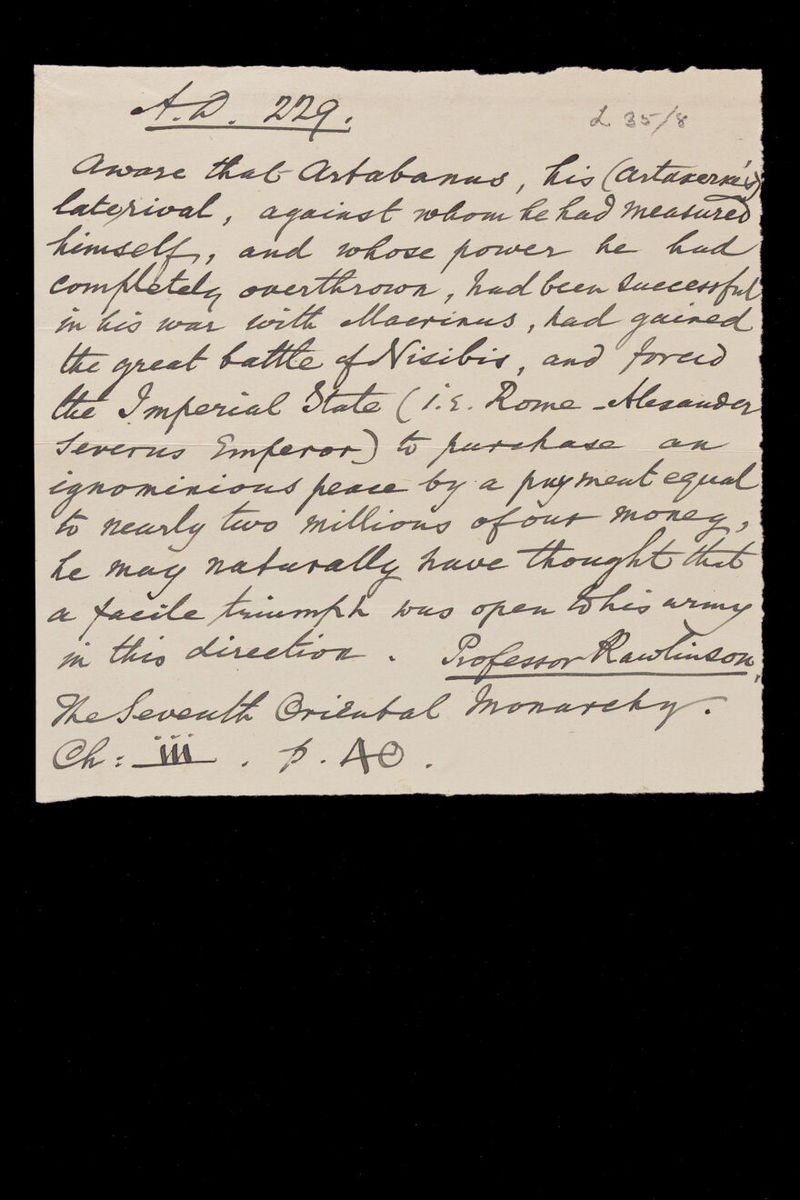 A.D. 229.
L 35/8
Aware that Artabanus, his (Artaxerxes's)
late rival, against whom he had measured
himself, and whose power he had
completely overthrown, had been successful
in his war with Macrinus, had gained
the great battle of Nisibis, and forced
the Imperial State (i.e. Rome - Alexander
Severus Emperor) to purchase an
ignominious peace by a payment equal
to nearly two millions of our money,
he may naturally have thought that
a facile triumph was open to his army
in this direction. Professor Rawlinson,
The Seventh Oriental Monarchy.
Ch: iii. p. 40.